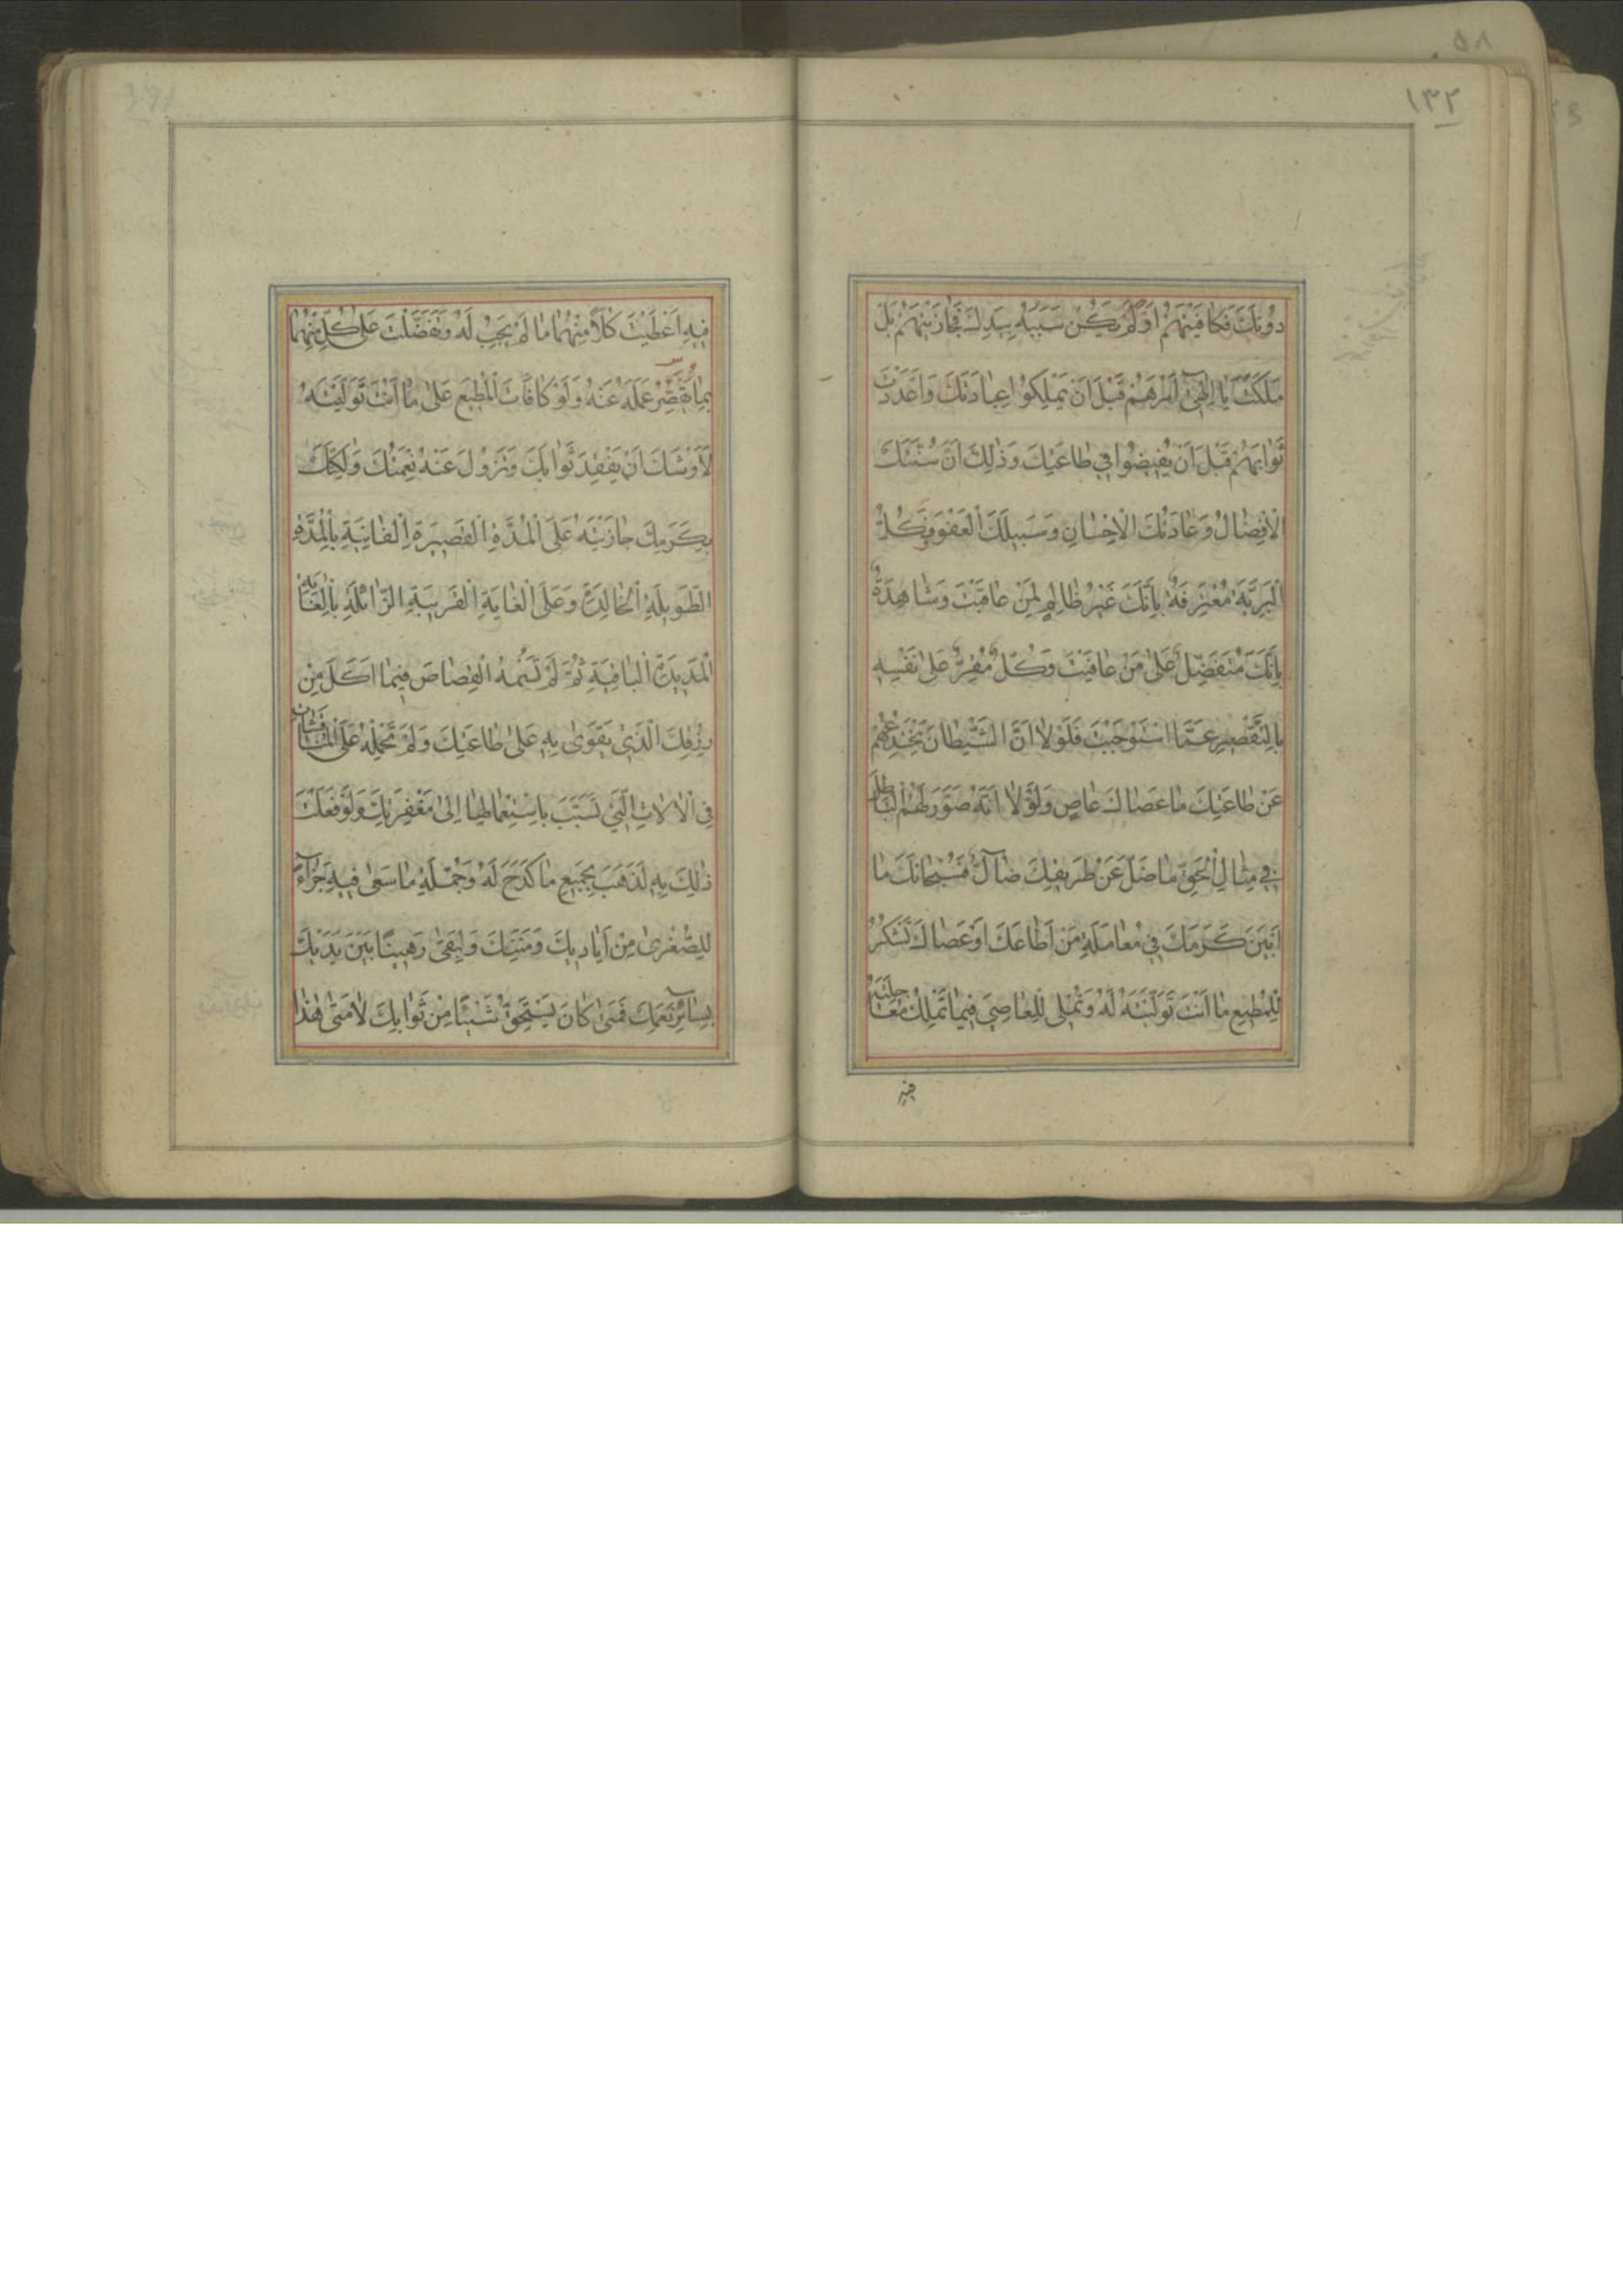 ١٣٢
دُونَكَ فَكَافَيْتَهُمْ اَوْ لَمْ يَكُنْ سَبَبُهُ بِيَدِكَ فَجَازَيْتَهُمْ بَلْ
مَلَكْتَ يَا اِلٰهِىٓ اَمْرَهُمْ قَبْلَ اَنْ يَمْلِكُوا عِبَادَتَكَ وَاَعْدَدْتَ
ثَوَابَهُمْ قَبْلَ اَنْ يُفِيضُوا فِي طَاعَتِكَ وَذٰلِكَ اَنَّ سُنَّتَكَ
الْاِفْضَالُ وَعَادَتَكَ الْاِحْسَانِ وَسَبِيلَكَ الْعَفْوَ فَكُلُّ
الْبَرِيَّةِ مُعْتَرِفَةٌ بِاَنَّكَ غَيْرُ ظَالِمٍ لِمَنْ عَاقَبْتَ وَشَاهِدَةٌ
بِاَنَّكَ مُتَفَضِّلٌ عَلٰى مَنْ عَافَيْتَ وَكُلٌّ مُقِرٌّ عَلٰى نَفْسِهِ
بِالتَّقْصِيرِ عَمَّا اسْتَوْجَبْتَ فَلَوْلَا اَنَّ الشَّيْطَانَ يَخْتَدِعُهُمْ
عَنْ طَاعَتِكَ مَا عَصَاكَ عَاصٍ وَلَوْلَا اَنَّهُ صَوَّرَ لَهُمُ الْبَاطِلَ
فِي مِثَالِ الْحَقِّ مَا ضَلَّ عَنْ طَرِيقِكَ ضَآلٌّ فَسُبْحَانَكَ مَا
اَبْيَنَ كَرَمَكَ فِي مُعَامَلَةِ مَنْ اَطَاعَكَ اَوْ عَصَاكَ تَشْكُرُ
لِلْمُطِيعِ مَا اَنْتَ تَوَلَّيْتَهُ لَهُ وَتُمْلِي لِلْعَاصِي فِيمَا تَمْلِكُ مُعَاجَلَتَهُ
فِيهِ اَعْطَيْتَ كُلًّا مِنْهُمَا مَا لَمْ يَجِبْ لَهُ وَتَفَضَّلْتَ عَلٰى كُلٍّ مِنْهُمَا
بِمَا يَقْصُرُ عَمَلُهُ عَنْهُ وَلَوْ كَافَاْتَ الْمُطِيعَ عَلٰى مَا اَنْتَ تَوَلَّيْتَهُ
لَاَوْشَكَ اَنْ يَفْقِدَ ثَوَابَكَ وَتَزُولَ عَنْهُ نِعْمَتُكَ وَلٰكِنَّكَ
بِكَرَمِكَ جَازَيْتَهُ عَلَى الْمُدَّةِ الْقَصِيرَةِ الْفَانِيَةِ بِالْمُدَّةِ
الطَّوِيلَةِ الْخَالِدَةِ وَعَلَى الْغَايَةِ الْقَرِيبَةِ الزَّائِلَةِ بِالْغَايَةِ
الْمَدِيدَةِ الْبَاقِيَةِ ثُمَّ لَمْ تَسُمْهُ الْقِصَاصَ فِيمَا اَكَلَ مِنْ
رِزْقِكَ الَّذِي يَقْوٰى بِهِ عَلٰى طَاعَتِكَ وَلَمْ تَحْمِلْهُ عَلَى الْمُنَاقَشَاتِ
فِي الْاٰلَاتِ الَّتِي تَسَبَّبَ بِاسْتِعْمَالِهَا اِلٰى مَغْفِرَتِكَ وَلَوْ فَعَلْتَ
ذٰلِكَ بِهِ لَذَهَبَ بِجَمِيعِ مَا كَدَحَ لَهُ وَجُمْلَةِ مَا سَعٰى فِيهِ جَزَآءً
لِلصُّغْرٰى مِنْ اَيَادِيكَ وَمِنَنِكَ وَلَبَقِىَ رَهِينًا بَيْنَ يَدَيْكَ
بِسَآئِرِ نِعَمِكَ فَمَتٰى كَانَ يَسْتَحِقُّ شَيْئًا مِنْ ثَوَابِكَ لَا مَتٰى هٰذَا